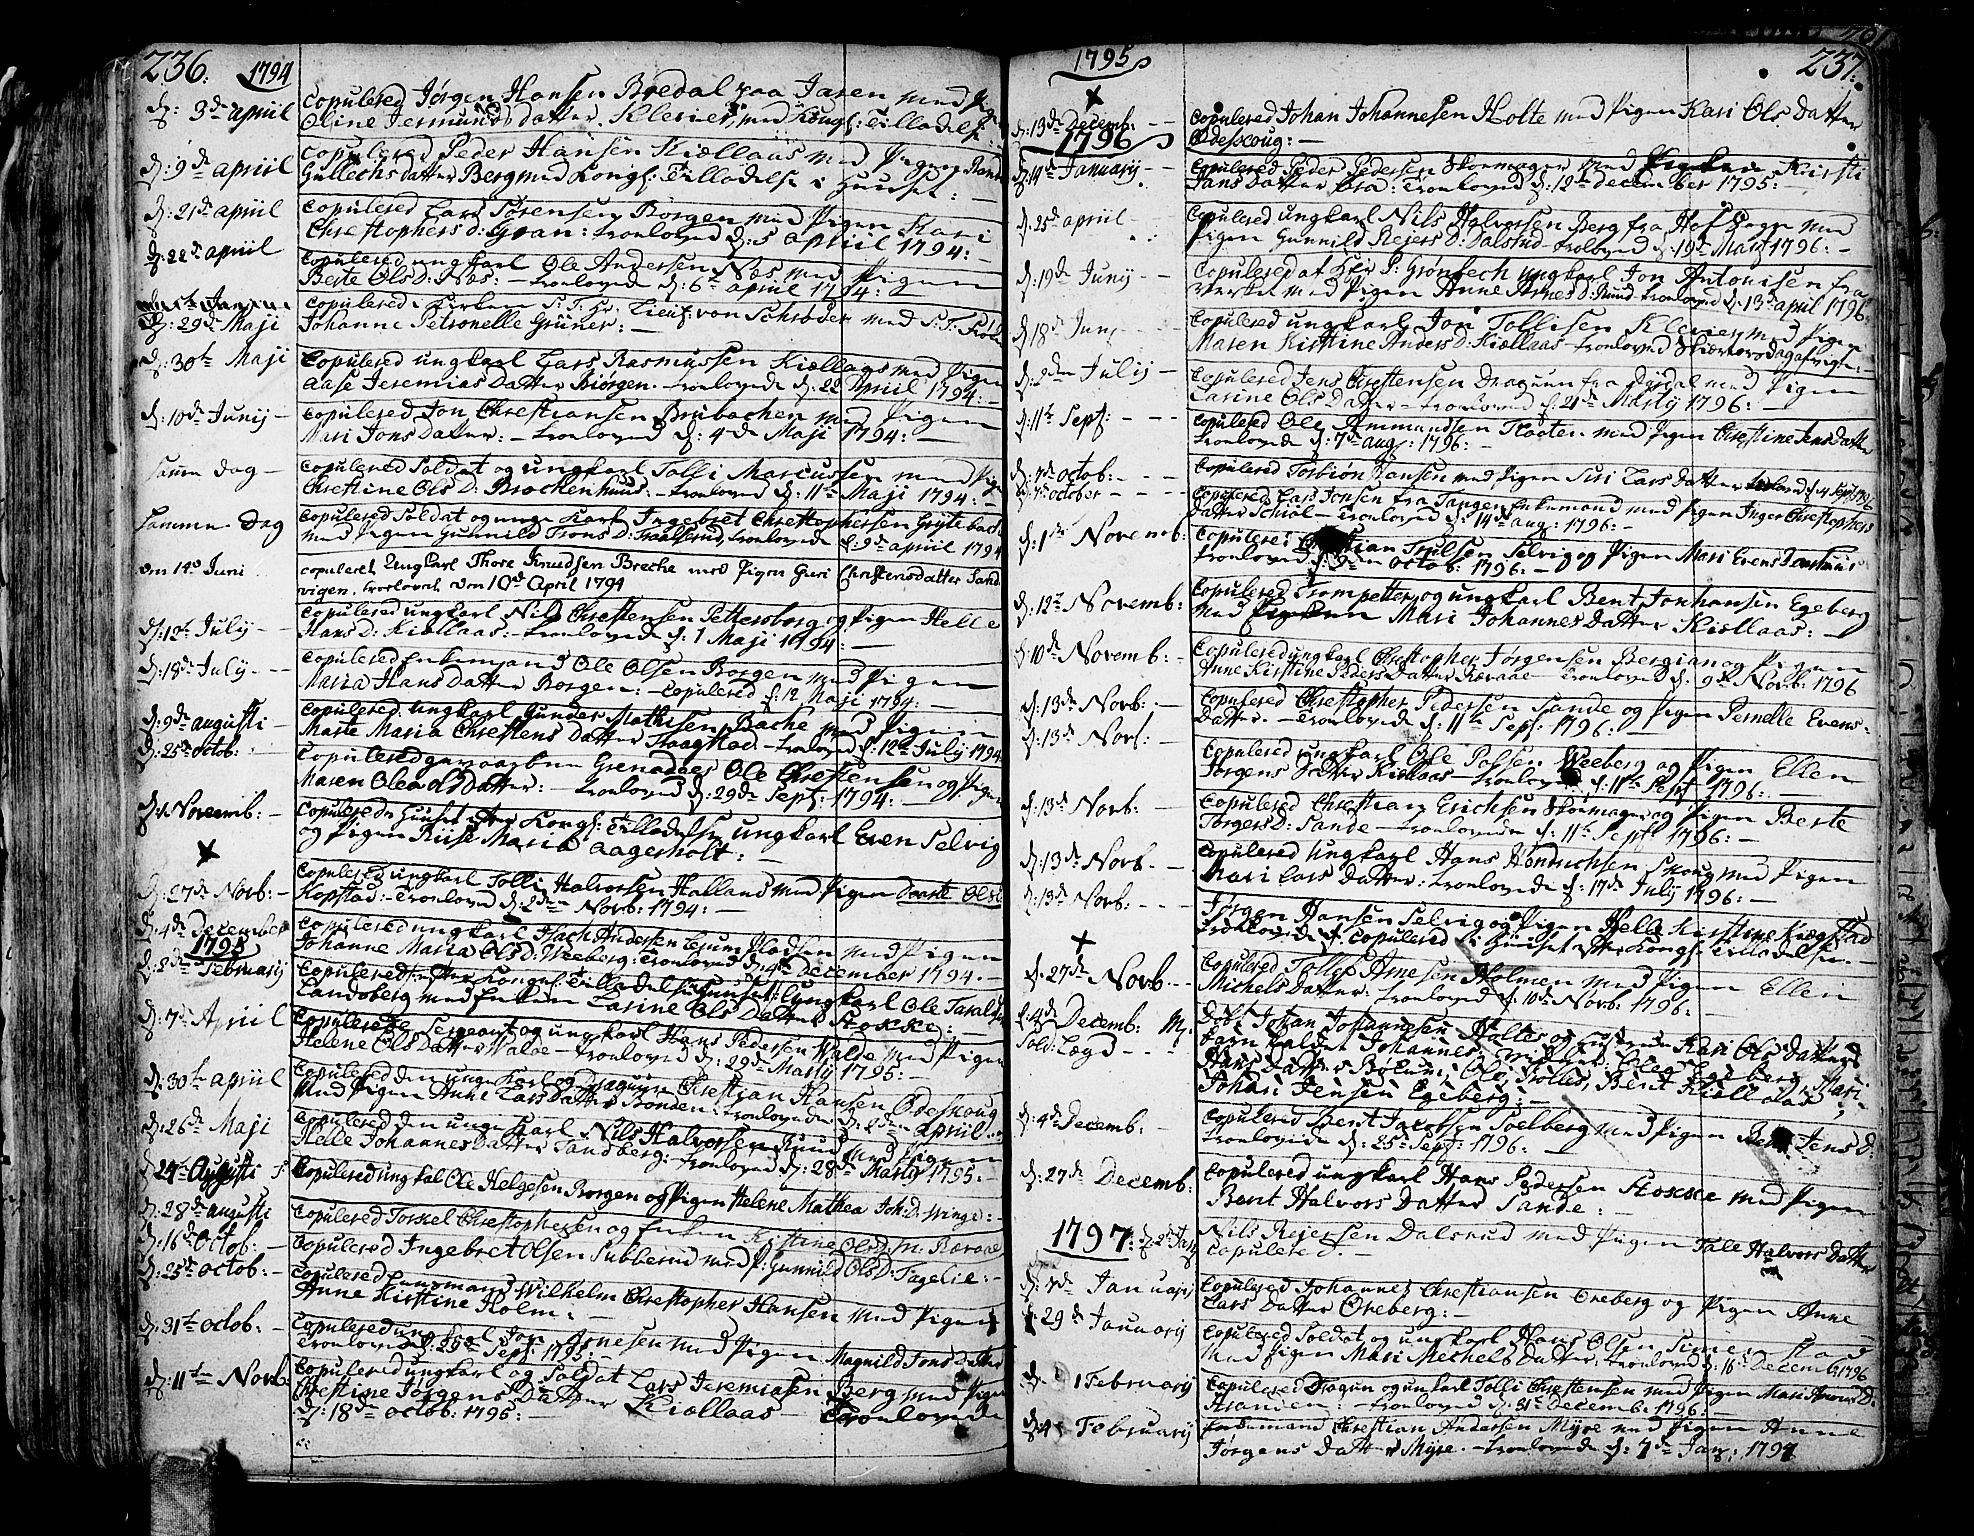 236:
1794
d: 3de april
copulered Jørgen Hansen Bredal paa Jaren med Pigen
Oline Jermunds datter Klevier, med Kongl: Tilladelse:
d: 9de april
copulered Peder Hansen Kiøllaas med Pigen Randi
Gullechs datter Berg med Kongl: Tilladelse i Huuset: —
d: 21de april
copulered Lars Sørensen Borgen med Pigen Kari
Chrestophers d: Gran: — troelovede d: 5 april 1794: —
d: 22de april
copulered ungkarl Ole Andersen Næs med Pigen
Berte Ols D: Næs: — troelovede d: 6te april 1794: —
d: 29de Maji
copulered i Kirken S: T: Hr: Lieut: von Schrøder med S: T: Frøken
Johanne Petronelle Grüner: —
d: 30te Maji
copulered ungkarl Lars Rasmussen Kiøllaas med Pigen
Aase Jeremias Datter Biørgen. — troelovede d: 22 April 1794: —
d: 10de Junij —
copulered Jon Chrestiansen Brubachen med Pigen
Mari Jons Datter: — troelovede d: 4de Maji 1794: —
samme Dag —
copulered Soldat og ungkarl Tolli Marcussen med Pigen
Chrestine Ols D: Brochenhuus: — troelovede d: 11te Maji 1794: —
sammen Dag
copulered Soldat og unge Karl Ingebret Chrestophersen Grytebach
med Pigen Gunnild Trons D: troelovede d: 9de april 1794
den 14d Juni
copuleret Ungkarl Thore Knudsen Breche med Pigen Guri Christensdatter Sand
vigen, trolovet den 10d April 1794
d: 12te July —
copulered ungkarl Nils Chrestensen Pettersborg og Pigen Helle
Hans D: Kiøllaas: — troelovede d: 1 Maji 1794: —
d: 18de July — —
copulered Enkemand Ole Olsen Borgen med Pigen
Maria Hans Datter Borgen: — copulered d: 12 Maji 1794: —
d: 9de augusti —
copulered: ungkarl Gunder Mathisen Bache med Pigen
Marte Maria Chrestens Datter Haagstad — troelovede d: 12te July 1794
d: 25de octob: —
copulered Grenadeer Ole Chrestensen og Pigen
Maren Ole Datter: — troelovede d: 29de Sept: 1794: —
d: Novemb: —
copulered i Huuset efter Kongl: Tilladelse ungkarl Even Selvig
og Pigen Riise Maria Aagerholt: —
d: 27de Novb: —
copulered ungkarl Tolli Halvorsen Halland med Pigen Dorte Ols
Kopstad: — troelovede d: 2den Novb: 1794: —
d: 4de December
copulered ungkarl Andersen med Pigen
Johanne Maria Ols D: Weeberg: troelovede d: 4de December 1794: —
1795
d: 2de Februarij
copulered: efter Kongl: Tilladelse i Huuset: ungkarl Ole Taralds
Landsberg med Enken Larine Ols Datter Stokke: —
d: 7de April
copulered Sergeant og ungkarl Hans Pedersen Walde med Pigen
Helene Ols Datter Walde — troelovede d: 29de Martij 1795: —
d: 30te april
copulered den unge Karl og Draguun Chrestian Hansen Ødeskoug
med Pigen Anne Lars Datter Bonden: — troelovede d: 2den april
d: 26de Maji
copulered den unge Karl Nils Halvorsen Ruud med Pigen
Helle Johannes Datter Sandberg: — troelovede d: 28de Martij 1795: —
24de Augusti
copulered ungkal Ole Helgesen Borgen og Pigen Helene Mathea Joh: D: Winge: —
d: 28de augusti
copulered Torkel Chrestophersen og Enken Kirstine Ols D: Rævaae
d: 16de octob: —
copulered Ingebret Olsen Subberud med P: Gunnild Ols D: Fagelie: —
d: 25de octob: —
copulered Lensmand Wilhelm Chrestopher Hansen med Pigen
Anne Kirstine Holm: —
d: 31te octob: —
copulered ungkarl Jon Arnesen med Pigen Magnild Jons Datter
troelovede d: 29de Sept: 1795: —
d: 11te Novb:
copulered ungkarl og Soldat Lars Jeremiasen Berg med Pigen
Chrestine Jørgens Datter Kiøllaas — troelovede
d: 18de octob: 1795: —
1795
237:
d: 13de Decemb: — —
copulered Johan Johannesen Holte med Pigen Kari Ols Datter
Ødescoug: —
1796
d: 14de Januarij —
copulered Peder Pedersen Skomager med Kirsti
Jans Datter troelovede d: 12te december 1795: —
d: 25de april — —
copulered ungkarl Nils Halvorsen Berg fra Hof Sogn med
Pigen Gunnild Rejers D: Dalsrud — troelovede d: 19de Martj 1796: —
d: 19de Junij
copulered af Hr: P: Grønbech ungkarl Jon Antonisen fra
Verket med Pigen Anne Arnes D: Ruud troelovede d: 13de april 1796:
d: 18de Junj — —
copulered ungkarl Jon Tollisen Klevier med Pigen
Maren Kirstine Anders D: Kiøllaas — troelovede
d: 2den Julij —
copulered Jens Chrestensen Draguun fra med Pigen
Larine Ols Datter — troelovede d: 21de Martij 1796: —
d: 11te Sept: — — —
copulered Ole Ammundsen med Pigen Chrestine Jens Datter
troelovede d: 7de aug: 1796: —
d: 2de octob: — — —
copulered Torbiørn Hansen med Pigen Siri Lars Datter
d: 7de october — — —
copulered Lars Jonsen fra Tangen Enkemand med Pigen Inger Chrestophers
Datter Schiøl — troelovede d: 14de aug: 1796: —
d: 1te Novemb: —
copulered Chrestian Trulsen Selvig og Pigen Mari Evens Datter
troelovede d: 9den octob: 1796: —
d: 12te Novemb: —
copulered Trompetter og ungkarl Bent Johansen Egeberg
med Mari Johannes Datter Kiøllaas: —
d: 10de Novemb: —
copulered ungkarl Chrestopher Jørgensen Bergian og Pigen
Anne Kirstine Peders Datter Rævaae — troelovede d: 9de Novb: 1796
d: 13de Novb: —
copulered Chrestopher Pedersen Sande og Pigen Pernelle Evens-
Datter. — troelovede d: 11te Sept: 1796: —
d: 13de Novb: —
copulered ungkarl Ole Weeberg og Pigen Ellen
Jørgens Datter Kiøllaas — troelovede d: 11te Sept: 1796: —
d: 13de Novb: —
copulered Chrestian Erichsen Skomager og Pigen Berte
Torgers D: Sande — troelovede d: 11te Sept: 1796: —
d: 13de Novb: —
copulered Ungkarl Hans Hendrichsen Skoug med Pigen
Mari Lars Datter: troelovede d: 17de July 1796: —
d: 13de Novb: — — —
Jørgen Hansen Selvig og Pigen Helle Kirstine Kiægstad
troelovede d: copulered i Huuset efter Kongl: Tilladelse: —
d: 27de Novb: —
copulered Tollef Arnesen Holmen med Pigen Ellen
Michels Datter: — troelovede d: 10de Novb: 1796: —
d: 4de Decemb:
Sold: Lægd — — —
døbt Johan Johannesen Holtes og Hustrue Kari Ols Datters
barn kaldet Johannes; Ellen Egeberg, Mari
Hans Datter Bolmen, Ole Trolled, Berit Kiøllaas
Johan Jensen Egeberg: —
d: 4de Decemb: —
copulered Bent Jacobsen Soelberg med Pigen Jens d:
troelovede d: 25de Sept: 1796: —
d: 27de Decemb:
copulered ungkarl Hans Pedersen Stokke med Pigen
Bent Halvors Datter Sande: —
1797: d: 2de Jan:
Nils Rejersen Dalsrud med Pigen Tale Halvors Datter
copulered: —
d: 2de Januarij
copulered Johannes Chrestiansen Oreberg og Pigen Anne
Lars Datter Oreberg: —
d: 29de Januarij
copulered Soldat og ungkarl Hans Olsen
med Pigen Mari Mechels Datter, troelovede d: 16de Decemb: 1796
d: 1 Februarij
copulered Dragun og unkarl Tolli Chrestensen med Pigen Mari Amund D:
Stranden: — troelovede d: 31te Decemb: 1796: —
d: 4 Februarij
Enkemand Chrestian Andersen Myre med Pigen Anne
Jørgens Datter Myre. — troelovede d: 7de Jan: 1797